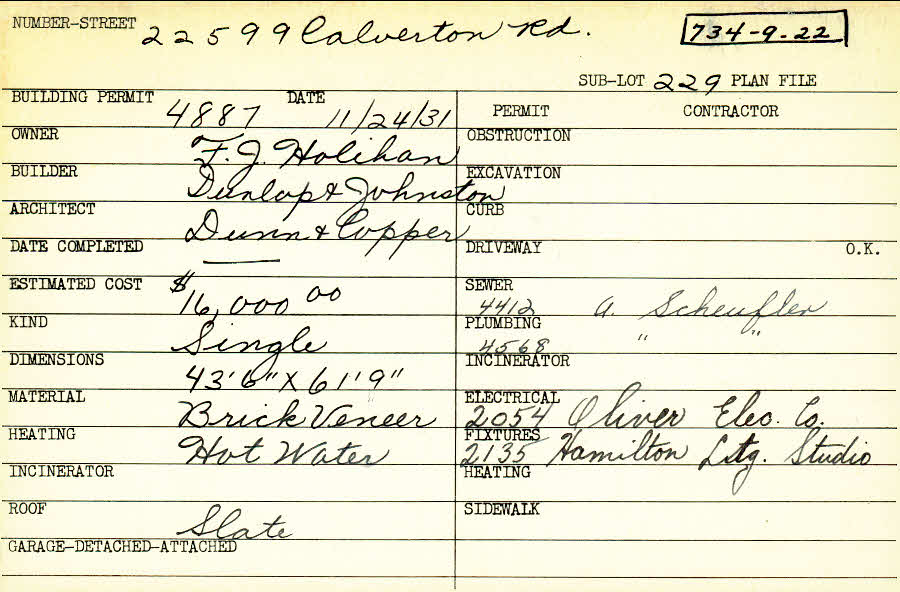 NUMBER-STREET 22599 Calverton Rd. 734-9-22
SUB-LOT 229 PLAN FILE
BUILDING PERMIT 4887 DATE 11/24/31
PERMIT CONTRACTOR
OWNER F. J. Holihan
OBSTRUCTION
BUILDER Dunlop & Johnston
EXCAVATION
ARCHITECT Dunn & Copper
CURB
DATE COMPLETED ——
DRIVEWAY O.K.
ESTIMATED COST $16,000 00
SEWER 4412 A. Scheufler
KIND Single
PLUMBING 4568 " "
DIMENSIONS 43'6" X 61'9"
INCINERATOR
MATERIAL Brick Veneer
ELECTRICAL 2054 Oliver Elec. Co.
HEATING Hot Water
FIXTURES 2135 Hamilton Ltg. Studio
INCINERATOR
HEATING
ROOF Slate
SIDEWALK
GARAGE-DETACHED-ATTACHED